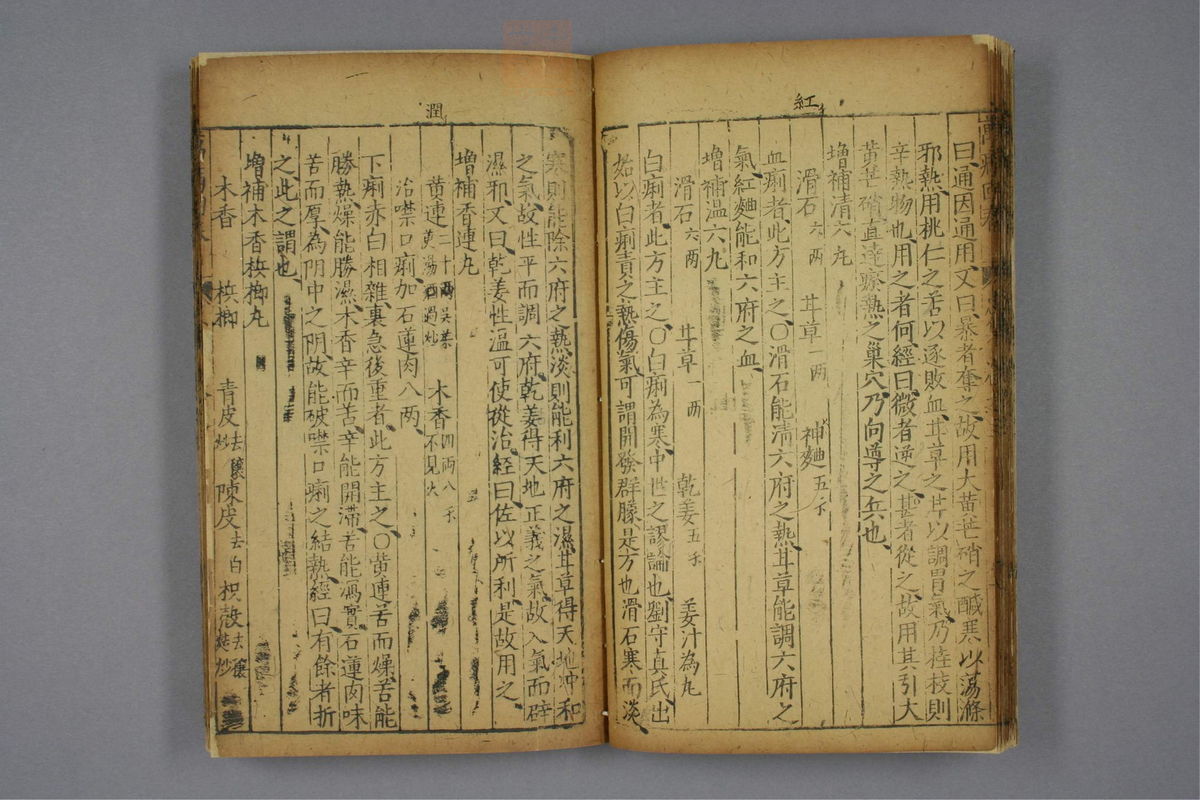 紅
曰通因通用又曰暴者奪之故用大黃芒硝之醎寒以蕩滌
邪熱用桃仁之苦以逐敗血甘草之甘以調胃氣乃桂枝則
辛熱物也用之者何經曰微者逆之甚者從之故用其引大
黃芒硝直達瘀熱之巢穴乃向導之兵也
增補清六丸
滑石六兩 甘草一兩 神麯五錢
血痢者此方主之○滑石能清六府之熱甘草能調六府之
氣紅麯能和六府之血
增補温六丸
滑石六兩 甘草一兩 乾姜五錢 姜汁為丸
白痢者此方主之○白痢為寒中世之謬論也劉守真氏出
始以白痢責之熱傷氣可謂開發群朦是方也滑石寒而淡
潤
寒則能除六府之熱淡則能利六府之濕甘草得天地冲和
之氣故性平而調六府乾姜得天地正義之氣故入氣而辟
濕邪又曰乾姜性温可使從治經曰佐以所利是故用之
增補香連丸
黃連二十兩吳茱萸湯洒過炒 木香四兩八錢不見火
治噤口痢加石蓮肉八兩
下痢赤白相雜裏急後重者此方主之○黃連苦而燥苦能
勝熱燥能勝濕木香辛而苦辛能開滯苦能瀉實石蓮肉味
苦而厚為阴中之阴故能破噤口痢之結熱經曰有餘者折
之此之謂也
增補木香梹榔丸
木香 梹榔 青皮去穰炒 陳皮去白 枳殼去穰炒